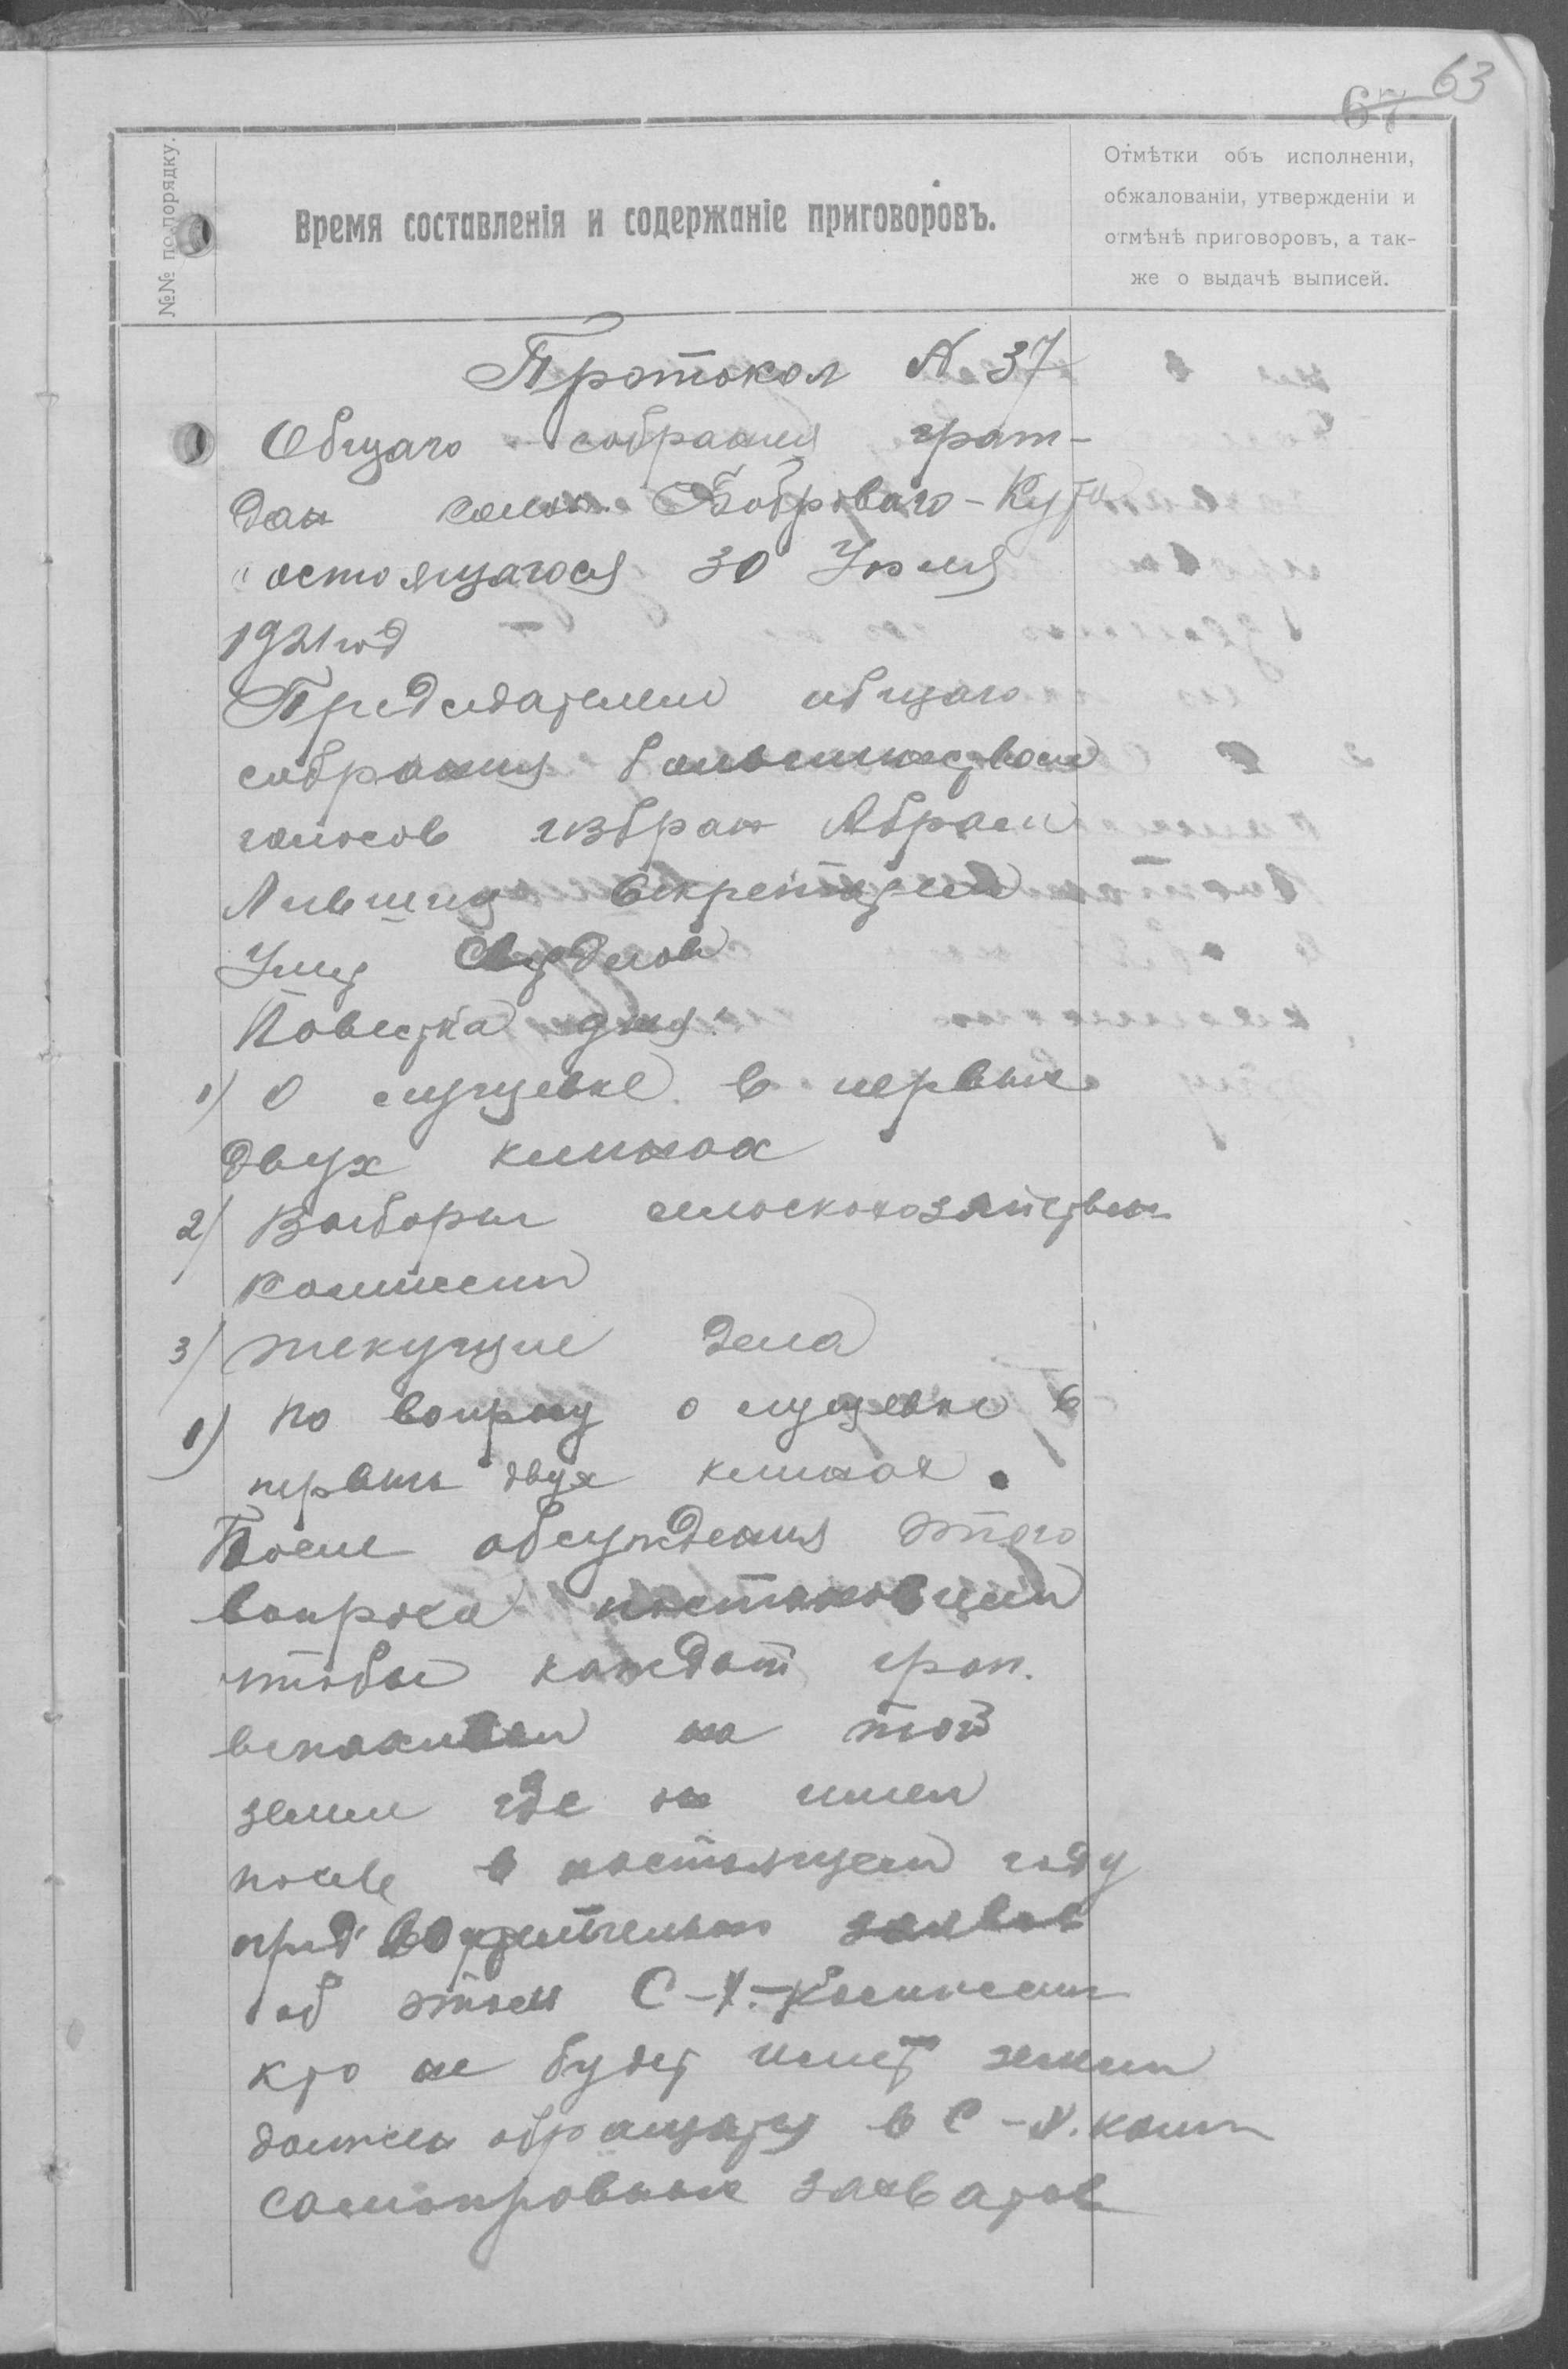 63
67
№№ по порядку.
Время составленія и содержаніе приговоровъ.
Отмѣтки объ исполненіи,
обжалованіи, утвержденіи и
отмѣнѣ приговоровъ, а так-
же о выдачѣ выписей.
Протокол N 37
Общаго собрания граж-
дан колон. Боброваго-Кута
состоящагося 30 Июля
1921 год
Председателем общаго
собрания большинством
голосов избран Абрам
Лившиц Секретарем
Повестка дня:
1) О лущевке в первых
двух клинах
2) Выборы сельскохозяйствен
комиссии
3) текущие дела
1) по вопросу о лущевке в
первых двух клинах.
После обсуждения этого
вопроса постановили
чтобы каждый граж.
вспахивал на той
земли где он имел
посев в настоящем году
предворительно заявив
об этом С-Х.-Комиссии
кто не будет имет земли
должен обращатся в С-Х. комис
самоправных захватов